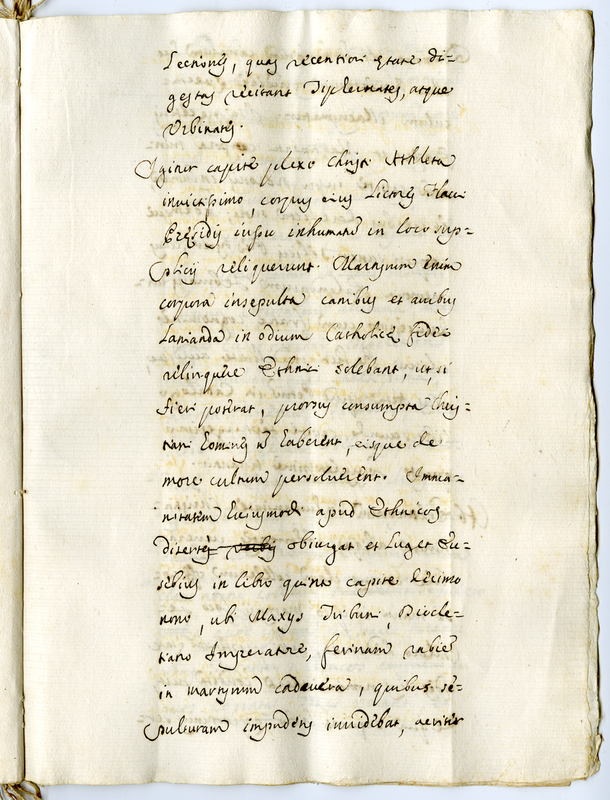 Lectiones, quas recentiori ętate di=
gestas recitant Diplomates, atque
Urbinates.
Igitur capite plexo Christi Athleta
invictissimo, corpus eius Lictores Flavii
Pręsidis iussu inhumatũ in loco sup=
plicij reliquerunt. Martyrum enim
corpora insepulta canibus et avibus
Lanianda in odium Catholicę fidei
relinquere Ethnici solebant, ut, si
fieri poterat, prorsus consumpta Chris=
tiani homines nõ haberent, eisque de
more cultum persolverent. Imma=
nitatem huiusmodi apud Ethnicos
disertis obiurgat et luget Eu=
sebius in libro quinto capite decimo
nono, ubi Maxys Tribuni, Diocle=
tiano Imperatore, ferinam rabiẽ
in martyrum cadavera, quibus se=
pulturam impudens invidebat, acriter